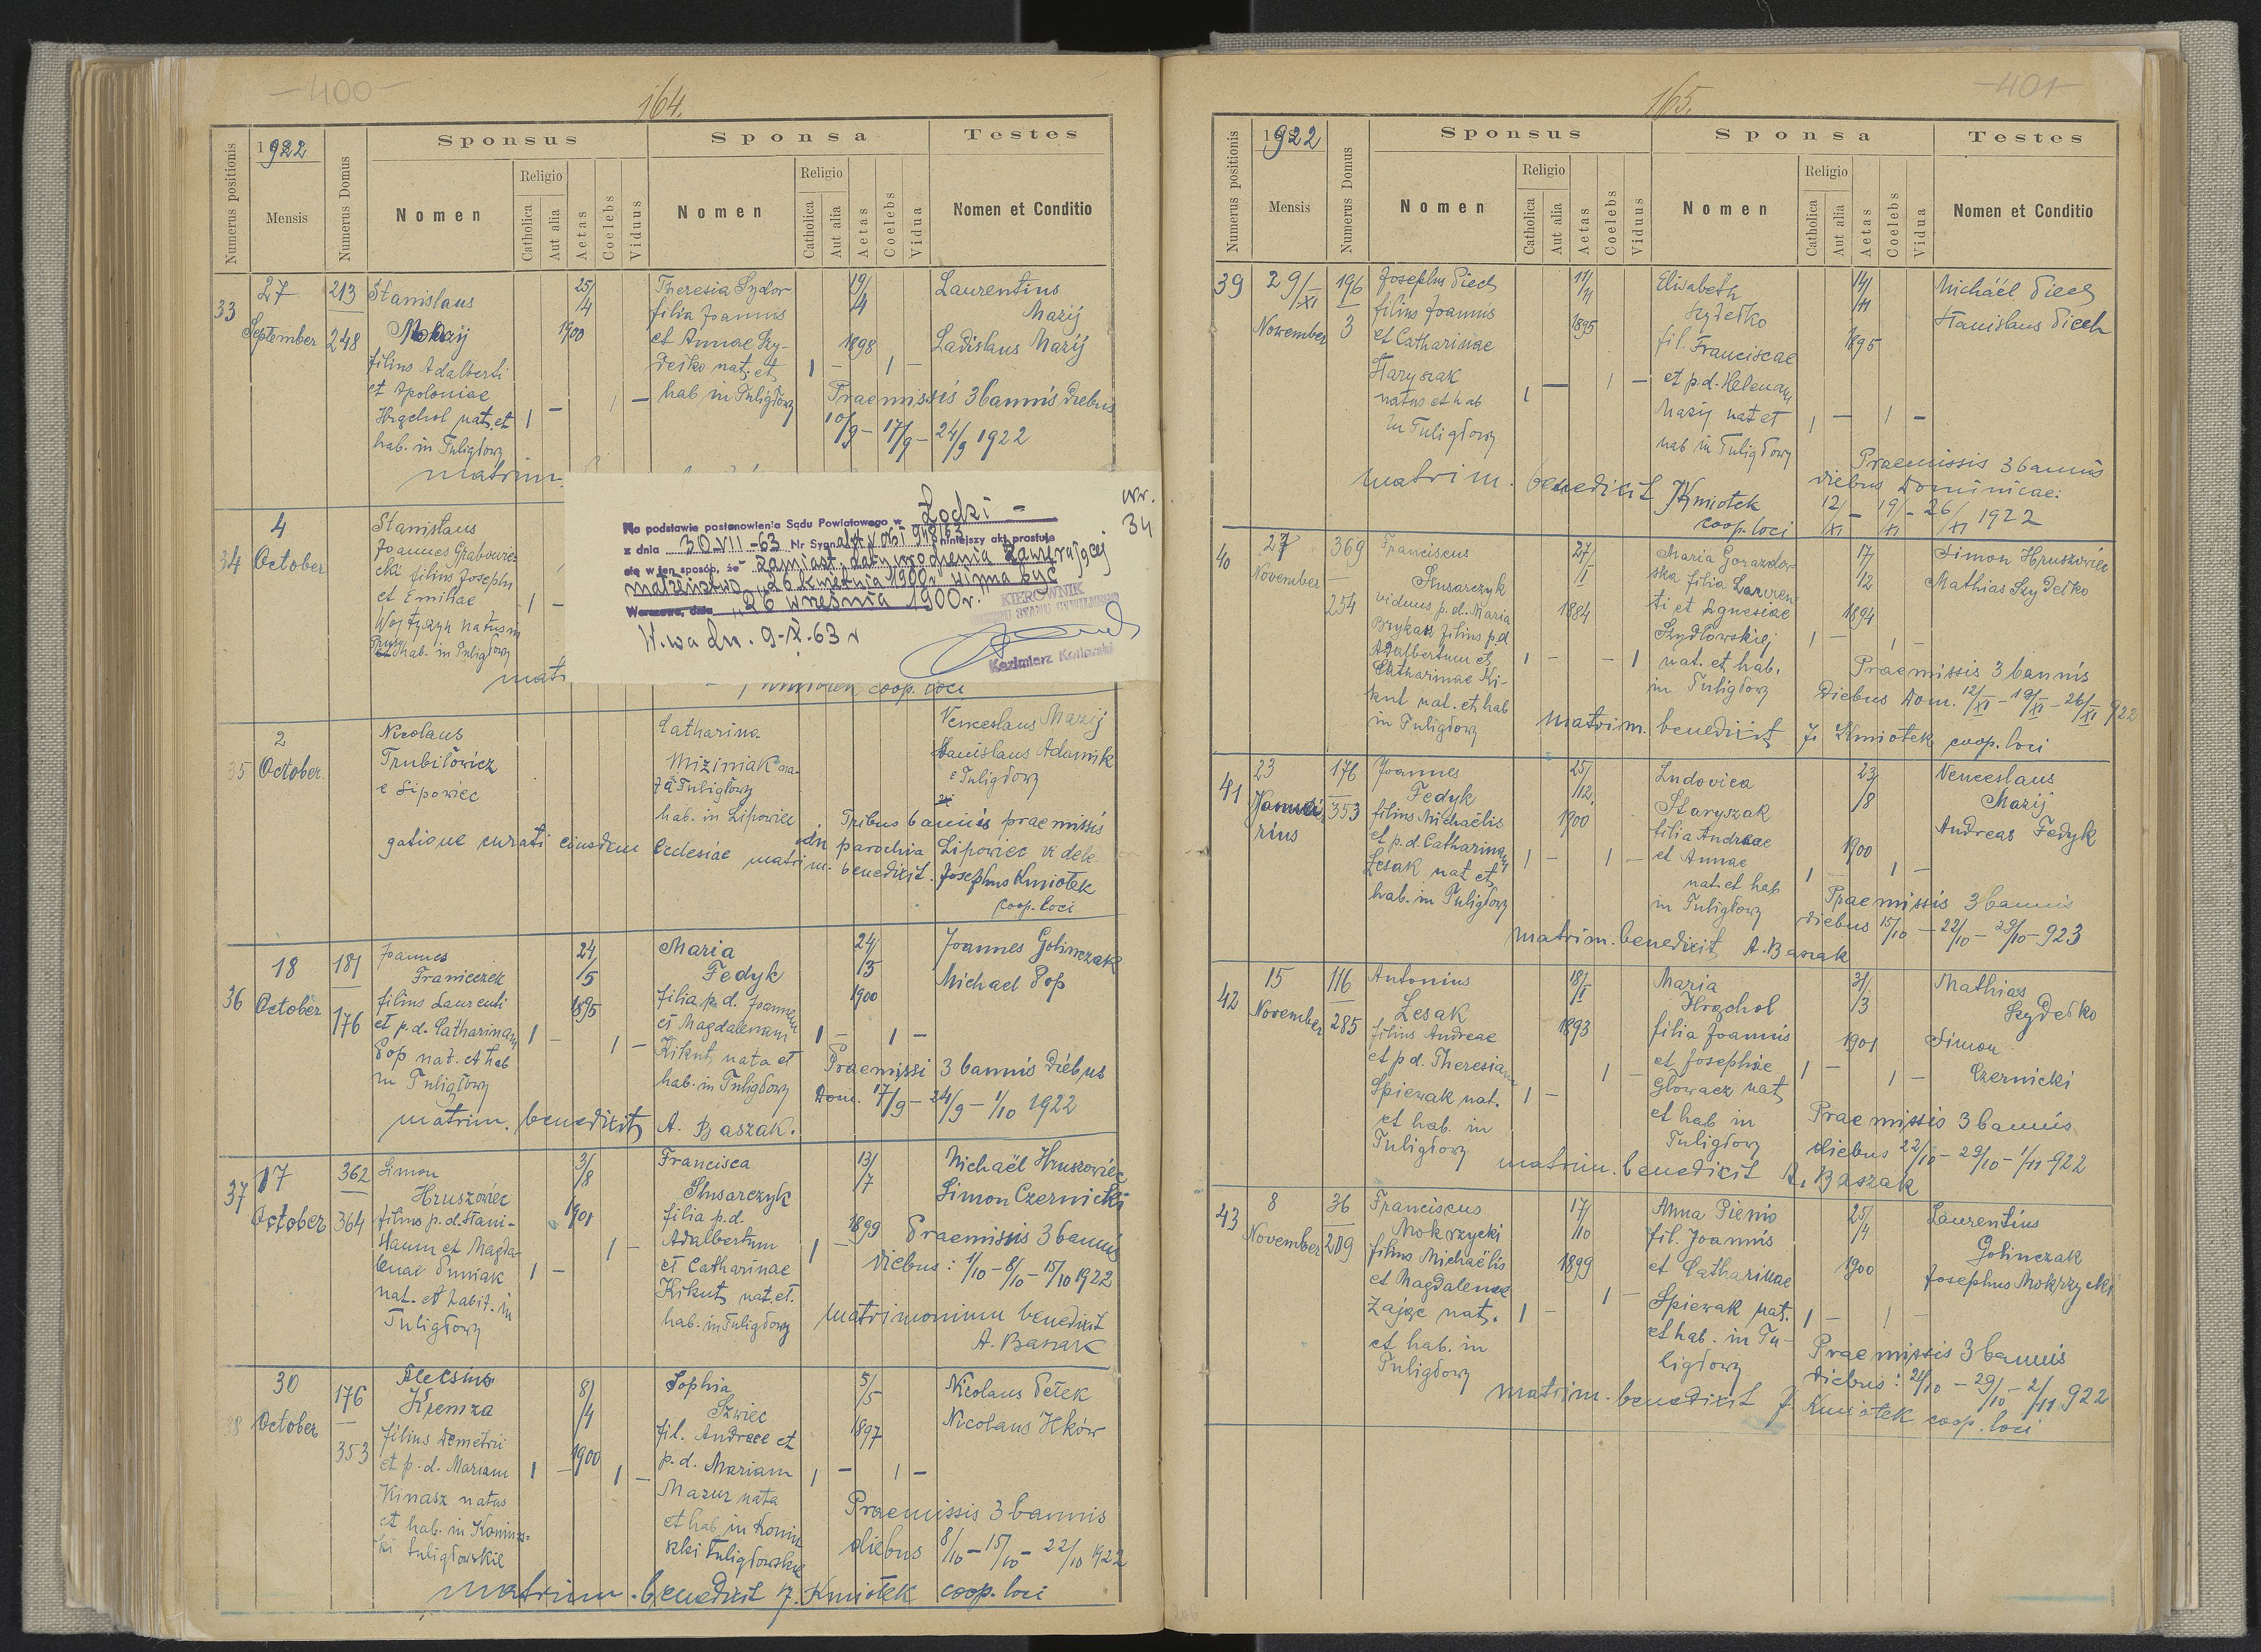 -400-
164.
Sponsus
Sponsa
Testes
Numerus positionis
1922
Mensis
Numerus Domus
Nomen
Religio
Catholica
Aut alia
Aetas
Coelebs
Viduus
Nomen
Religio
Catholica
Aut alia
Aetas
Coelebs
Vidua
Nomen et Conditio
33
27
September
213
248
Stanislaus
Mazij
filius Adalberti
et Apoloniae
Hrąchol nat. et
hab. in Tuligłowy
1 -
1 -
25/4
1900
Theresia Sydor
filia Joannis
et Annae Szy-
dełko nat. et
hab in Tuligłowy
1 -
1 -
19/4
1898
Laurentius
Mazij
Ladislaus Mazij
Praemissis 3 bannis diebus
10/9 - 17/9 - 24/9 1922
matrim.
34
4
October
Stanislaus
Joannes
filius Josephi
et Emiliae
Wojtyczyn natus in
hab. in Tuligłowy
1 -
matri
nr.
34
Na podstawie postanowienia Sądu Powiatowego w Łodzi -
z dnia 30-VII-63 Nr Sygn. akt niniejszy akt prostuje
się w ten sposób, że zamiast daty urodzenia zawierającej
małżeństwo „26 kwietnia 1900r" winna być
Warszawa, dnia „26 września 1900r."
KIEROWNIK
URZĘDU STANU CYWILNEGO
W.wa dn. 9-X-63 r
Kazimierz
coop. loci
35
2
October
Nicolaus
Trubiłowicz
e Lipowiec
Catharina
Miziniak na-
ta Tuligłowy
hab. in Lipowiec
Venceslaus Mazij
Stanislaus Adamik
e Tuligłowy
Tribus bannis praemissis
in parochia Lipowiec ve dele
gatione curati eiusdem Ecclesiae matrim. benedixit. Josephus Kmiotek
coop. loci
36
18
October
181
176
Joannes
Franiczek
filius Laurenti
et p.d. Catharinam
Pop nat. et hab
in Tuligłowy
1 -
1 -
24/5
1895
Maria
Fedyk
filia p.d. Joannem
et Magdalenam
Kikut, nata et
hab. in Tuligłowy
1 -
1 -
24/3
1900
Joannes Golinczak
Michael Pop
Praemissi 3 bannis diebus
Dom. 17/9 - 24/9 - 1/10 1922
matrim. benedixit A. Baszak.
37
17
October
362
364
Simon
Hruszowiec
filius p.d. Stani-
slaum et Magda-
lenae Puniak
nat. et habit. in
Tuligłowy
1 -
1 -
3/8
1901
Francisca
Ślusarczyk
filia p.d.
Adalbertum
et Catharinae
Kikut, nat. et.
hab. in Tuligłowy
1 -
13/7
1899
Michaël Hruszowiec
Simon Czernicki
Praemissis 3 bannis
diebus: 1/10 - 8/10 - 15/10 1922
matrimonium benedixit
A. Baszak
38
30
October
176
353
Alecsius
Kremza
filius Demetrii
et p.d. Mariam
Kinasz natus
et hab. in Koniusz-
ki tuligłowskie
1 -
1 -
8/4
1900
Sophia
Szwiec
fil. Andreae et
p.d. Mariam
Mazur nata
et hab in Koniu
szki tuligłowskie
1 -
1 -
5/5
1897
Nicolaus Pełek
Nicolaus Ilków
Praemissis 3 bannis
diebus 8/10 - 15/10 - 22/10 1922
matrim. benedixit J. Kmiotek coop. loci
-401-
165.
Sponsus
Sponsa
Testes
Numerus positionis
1922
Mensis
Numerus Domus
Nomen
Religio
Catholica
Aut alia
Aetas
Coelebs
Viduus
Nomen
Religio
Catholica
Aut alia
Aetas
Coelebs
Vidua
Nomen et Conditio
39
29/XI
November
196
3
Josephus Piech
filius Joannis
et Catharinae
Staryszak
natus et hab
in Tuligłowy
1 -
1 -
11/11
1895
Elisabeth
Szydełko
fil. Franciscae
et p.d. Helenam
Mazij nat et
hab in Tuligłowy
1 -
1 -
14/11
1895
Michaël Piech
Stanislaus Piech
Praemissis 3 bannis
diebus Dominicae:
12/XI - 19/XI - 26/XI 1922
matrim. benedixit J Kmiotek
coop. loci
40
27
November
369
254
Franciscus
Ślusarczyk
viduus p.d. Maria
filius p.d
Adalbertum et
Catharinae Ki-
kut nat. et hab
in Tuligłowy
1 -
- 1
27/I
1884
Maria Gorazdow-
ska filia Lauren
ti et Agnesiae
Szydłowskiej
nat. et hab.
in Tuligłowy
1 -
1 -
17/12
1894
Simon Hruszowiec
Mathias Szydełko
Praemissis 3 bannis
Diebus Dom. 12/XI - 19/XI - 26/XI 922
matrim. benedixit J. Kmiotek coop. loci
41
23
Januarius
176
353
Joannes
Fedyk
filius Michaëlis
et p.d. Catharinam
Lesak nat et
hab. in Tuligłowy
1 -
1 -
25/12
1900
Ludovica
Staryszak
filia Andreae
et Annae
nat. et hab
in Tuligłowy
1
1 -
23/8
1900
Venceslaus
Mazij
Andreas Fedyk
Praemissis 3 bannis
diebus 15/10 - 22/10 - 29/10 - 923
matrim. benedixit A. Baszak
42
15
November
116
285
Antonius
Lesak
filius Andreae
et p.d. Theresiam
Spiewak nat.
et hab. in
Tuligłowy
1 -
1 -
18/I
1893
Maria
Hrąchol
filia Joannis
et Josephae
Głowacz nat
et hab in
Tuligłowy
1 -
1 -
31/3
1901
Mathias
Szydełko
Simon
Czernicki
Praemissis 3 bannis
diebus 22/10 - 29/10 - 1/11 922
matrim. benedixit A. Baszak
43
8
November
36
209
Franciscus
Mokrzycki
filius Michaëlis
et Magdalenae
Zając nat.
et hab. in
Tuligłowy
1 -
1 -
17/10
1899
Anna Pienio
fil. Joannis
et Catharinae
Spiewak nat.
et hab. in Tu-
ligłowy
1 -
1
25/4
1900
Laurentius
Golinczak
Josephus Mokrzycki
Praemissis 3 bannis
diebus: 21/10 - 29/10 - 2/11 922
matrim. benedixit J. Kmiotek coop. loci